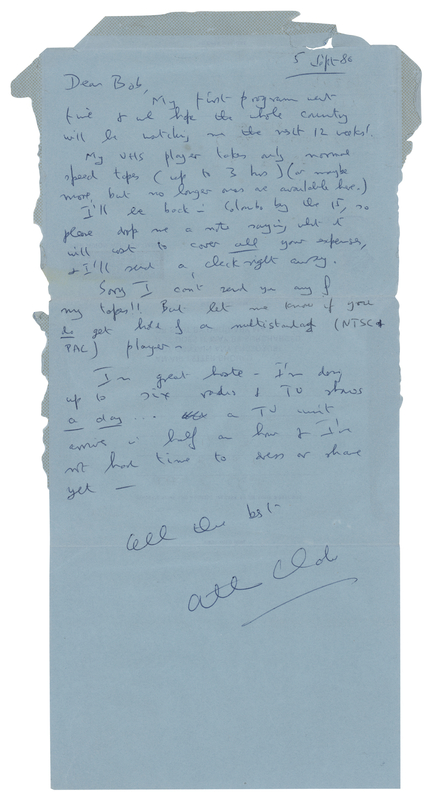 5 Sept 80
Dear Bob,
My first program went
fine & we hope the whole country
will be watching me the next 12 weeks!
My VHS player takes only normal
speed tapes (up to 3 hrs) (or maybe
more, but no longer ones are available here.)
I'll be back in Colombo by the 15, so
please drop me a note saying what it
will cost to cover all your expenses,
& I'll send a check right away.
Sorry I can't send you any of
my tapes!! But let me know if you
do get hold of a multistandard (NTSC &
PAL) player –
In great haste – I'm doing
up to six radio & TV shows
a day... a TV unit
arrives in half an hour & I've
not had time to dress or shave
yet —
All the best